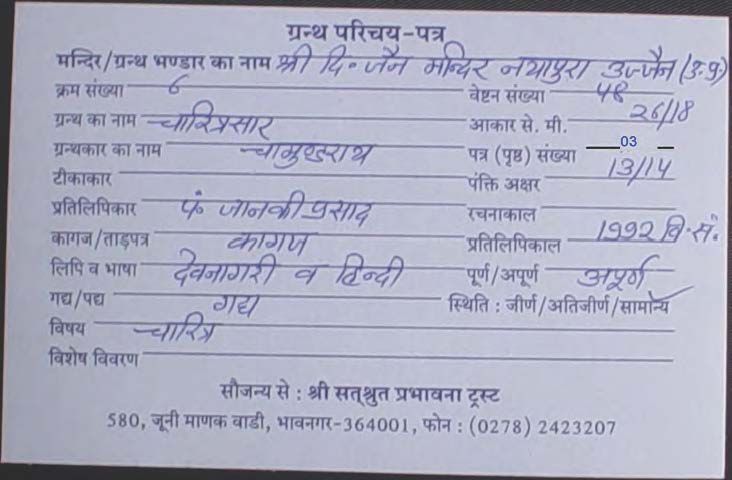 ग्रन्थ परिचय-पत्र
मन्दिर/ग्रन्थ भण्डार का नाम श्री दि॰ जैन मन्दिर नयापुरा उज्जैन (उ॰प्र॰)
क्रम संख्या 6 वेष्टन संख्या 48
ग्रन्थ का नाम चारित्रसार आकार से. मी. 26/18
ग्रन्थकार का नाम चामुण्डराय पत्र (पृष्ठ) संख्या 03
टीकाकार पंक्ति अक्षर 13/14
प्रतिलिपिकार पं॰ जानकी प्रसाद रचनाकाल
कागज/ताड़पत्र कागज प्रतिलिपिकाल 1992 वि॰ सं॰
लिपि व भाषा देवनागरी व हिन्दी पूर्ण/अपूर्ण अपूर्ण
गद्य/पद्य गद्य स्थिति : जीर्ण/अतिजीर्ण/सामान्य
विषय चारित्र
विशेष विवरण
सौजन्य से : श्री सत्श्रुत प्रभावना ट्रस्ट
580, जूनी माणक वाडी, भावनगर-364001, फोन : (0278) 2423207